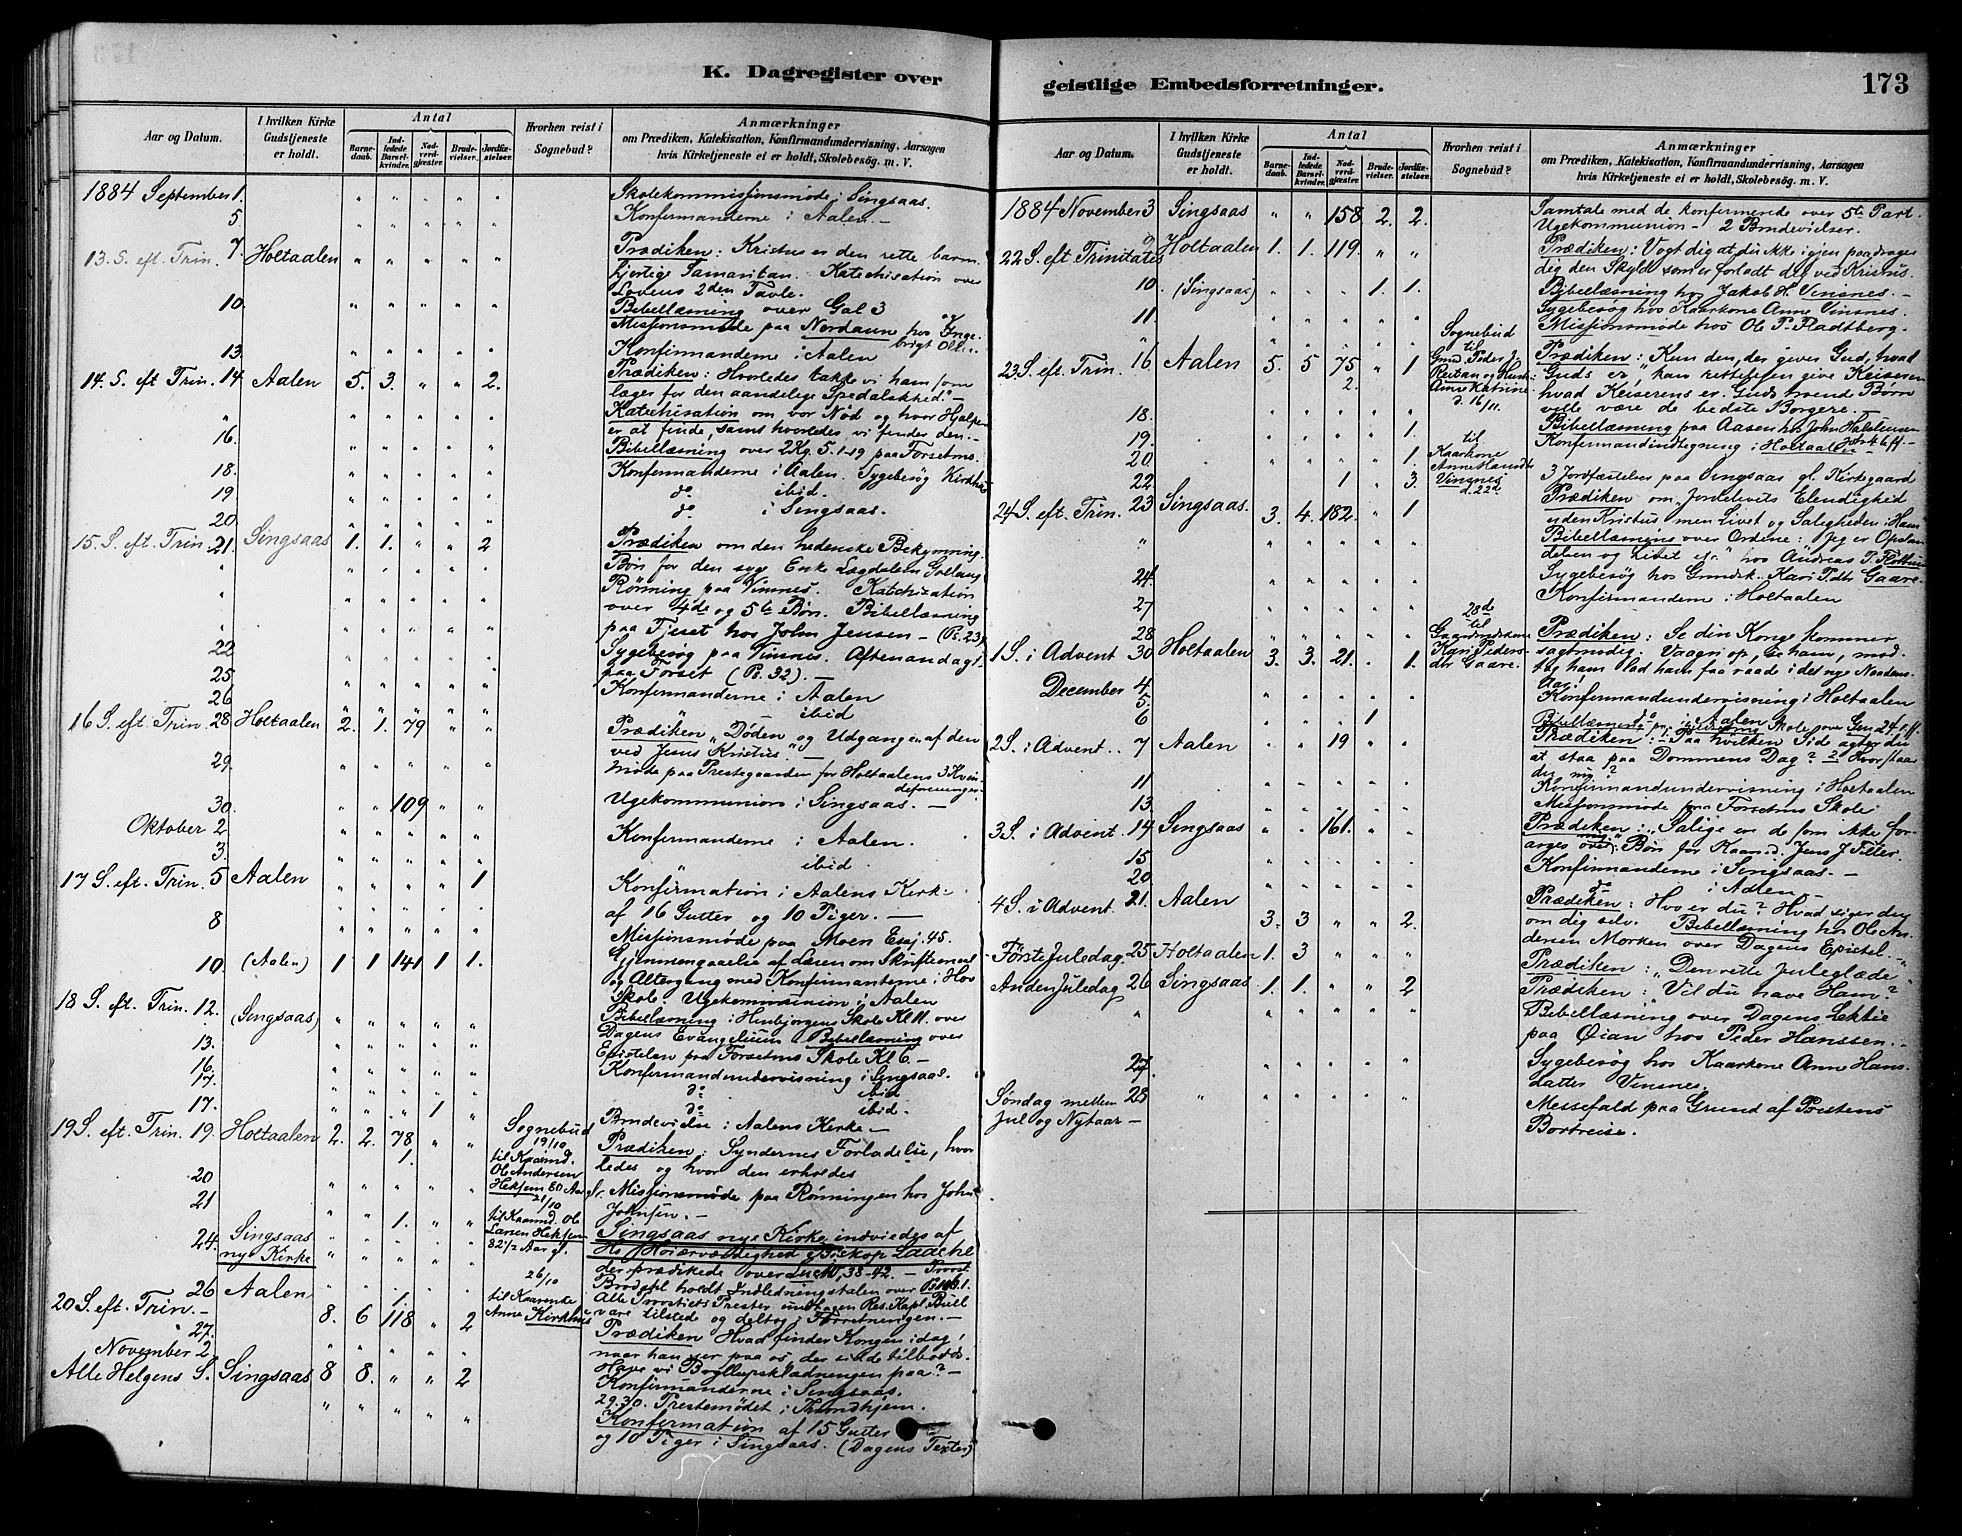 K. Dagregister over
Aar og Datum.
I hvilken Kirke Gudstjeneste er holdt.
Antal
Barnedaab.
Indledede Barselkvinder.
Nadverdgjæster.
Brudevielser.
Jordfæstelser.
Hvorhen reist i Sognebud?
Anmærkninger
om Prædiken, Katekisation, Konfirmandundervisning, Aarsagen
hvis Kirketjeneste ei er holdt, Skolebesøg. m. V.
1884 September 1. Skolekommissjonsmøde i Singsaas.
5 Konfirmanderne i Aalen –
13. S. eft. Trin. 7. Holtaalen Prædiken: Kristus er den rette barm
hjertige Samaritan. Katechisation over
Lovens 2den Tavle.
10. Bibellæsning over Gal 3
Missjonsmøde paa Nordaun hos Inge
brigt Ols.
13. Konfirmanderne i Aalen
14. S. eft Trin. 14 Aalen 5. 3. " " 2. Prædiken: Hvorledes takke vi ham som
læger for den aandelige Spedalskhed." –
Katechisation om vor Nød og hvor Hjælpen
er at finde, samt hvorledes vi finder den.
16. Bibellæsning over 2 Kg. 5. 1-19 paa Forsetmo.
18. Konfirmanderne i Aalen. Sygebesøg Kirkhus
19 do ibid.
20. do i Singsaas.
15. S. eft. Trin. 21. Singsaas 1. 1. " " 2 Prædiken om den hedenske Bekymring.
Bøn for den syge Enke
Rønning paa Vinsnes. Katechization
over 4de og 5te Bøn. Bibellæsning
paa Fjeset hos John Jensen – (Ps. 23).
22 Sygebesøg paa Vinsnes. Aftenandagt
paa Forset (Ps. 32). –
25 Konfirmanderne i Aalen
26 " ibid
16 S. eft. Trin. 28 Holtaalen 2. 1. 79 " " Prædiken „Døden og Udgangen af den
ved Jesus Kristus". –
29. Møde paa Prestegaarden for Holtaalens 3 Kvin-
deforeninger.
30. " " 109 " " Ugekommunion i Singsaas. –
Oktober 2 Konfirmanderne i Aalen.
3. " ibid
17 S. eft. Trin. 5 Aalen " " " " 1 Konfirmation i Aalens Kirke
af 16 Gutter og 10 Piger. –
8 Missjonsmøde paa Moen Esaj. 45.
10. (Aalen) 1 1 141 1 1. Gjennemgaaelse af Læren om Skriftemaal
og Altergang med Konfirmanterne i Hov
Skole. Ugekommunion i Aalen
18 S. eft. Trin. 12. (Singsaas) Bibellæsning i Henbjørgens Skole Kl 11. over
Dagens Evangelium. Bibellæsning over
Epistelen paa Forsetmo Skole Kl 6 –
13.
16. Konfirmandundervisning i Singsaas.
17. do ibid
17. " " " 1 " do ibid.
Brudevielse i Aalens Kirke –
19 S. eft. Trin. 19. Holtaalen 2. 2. 78 " " Sognebud
19/10
til Kaarmd.
Ole Andersen
Heksem 80 Aar gl.
Prædiken: Syndernes Forladelse, hvor
ledes og hvor den erholdes
20 Missjonsmøde paa Rønningen hos John
Johnsen. –
21 " " 1. " " 21/10
til Kaarmd. Ole
Larsen Heksem
82 1/2 Aar gl.
24. Singsaas
nye Kirke
Singsaas nye Kirke indviedes af
Hs Høiærværdighed Biskop Laache
der prædikede over Luc 10, 38-42. – Provst
Brodahl holdt Indledningstalen over
Alle Provstiets Prester undtagen Res. Kapl. Bull
vare tilstede og deltog i Forretningen. –
26 Aalen
20 S. eft. Trin. – 8. 6 118 " 2 26/10
til Kaarenke
Anne Kirkhus
Prædiken Hvad finder Kongen i dag
naar han ser paa os, der sidde tilbords.
Have vi Bryllupsklædningen paa? –
27. Konfirmanderne i Singsaas.
29. 30. Prestemødet i Trondhjem.
November 2
Alle Helgens S. Singsaas 8 8. " " 2 Konfirmation af 15 Gutter
og 10 Piger i Singsaas. (Dagens Texter)
geistlige Embedsforretninger.
173
Aar og Datum.
I hvilken Kirke Gudstjeneste er holdt.
Antal
Barnedaab.
Indledede Barselkvinder.
Nadverdgjæster.
Brudevielser.
Jordfæstelser.
Hvorhen reist i Sognebud?
Anmærkninger
om Prædiken, Katekisation, Konfirmandundervisning, Aarsagen
hvis Kirketjeneste ei er holdt, Skolebesøg. m. V.
1884 November 3 Singsaas " " 158 2. 2. Samtale med de konfirmerede over 5te Part.
Ugekommunion – 2 Brudevielser.
22 S. eft Trinitatis 9 Holtaalen 1. 1. 119. " " Prædiken: Vogt dig at du ikke igjen paadrager
dig den Skyld som er forladt dig ved Kristus.
10. (Singsaas) " " " 1. 1. Bibellæsning hos Jakob H. Vinsnes. –
Sygebesøg hos Kaarkone Anne Vinsnes.
11. Missjonsmøde hos Ole P. Fladtberg.
23 S. eft. Trin. 16 Aalen 5. 5 75 " 1 Sognebud
til
Gmd. Peder J.
og Hustr.
Anne Katrine
d. 16/11.
2.
Prædiken: Kun den, der giver Gud, hvad
Guds er," kan rettelig give Keiseren
hvad Keiserens er. Guds troende Børn
ville være de bedste Borgere.
18. Bibellæsning paa Aasen hos John Halsteinsen
19. 1. Konfirmandindtegning i Holtaalen
20 1. til
Kaarkone
Anne Hansdt
Vinsnes
d. 22de
22 1 " 3. 3 Jordfæstelser paa Singsaas gl. Kirkegaard
24 S. eft. Trin. 23 Singsaas. 3. 4. 182. " 1 Prædiken om Jordelivets Elendighed
uden Kristus men Livet og Saligheden i Ham
Bibellæsning over Ordene: „Jeg er Opstan
delsen og Livet etc." hos Andreas T.
24. Sygebesøg hos Gmdsk. Kari Pedts Gaare.
27 Konfirmanderne i Holtaalen
28 28de
til
Gaardmdskone
Kari Peders
dtr Gaare.
1 S. i Advent 30 Holtaalen 3. 3. 21. . 1. Prædiken: Se din Konge kommer
sagtmodig; Vaagn op, se ham, mod
tag ham lad ham faa raade i det nye Naadens
Aar!
December 4. Konfirmandundervisning i Holtaalen
5. do i Aalen
6 1
2 S. i Advent 7 Aalen " " 19 " " Prædiken: – Paa hvilken Side agter du
at staa paa Dommens Dag? Hvor staar
du nu?
11 Konfirmandundervisning i Holtaalen
13. Missjonsmøde paa Forsetmo Skole
3 S. i Advent. 14 Singsaas " " 161. " " Prædiken: „Salige er de som ikke for-
arges over mig." Bøn for Kaarmd. Jens J
15 Konfirmanderne i Singsaas. –
20 do i Aalen –
4 S. i Advent 21. Aalen 3. 3 " " 2. Prædiken: Hvo er du? Hvad siger du
om dig selv. Bibellæsning hos Ole An-
dersen Morken over Dagens Epistel. –
Første Juledag 25 Holtaalen 1. 3 " " " Prædiken: „Den rette Juleglæde"
Anden Juledag 26 Singsaas 1. 1. " " 2 Prædiken: „Vil du have Ham?"
Bibellæsning over Dagens Lektie
paa Øian hos Peder Hanssen. –
27 Sygebesøg hos Kaarkone Anne Hans
datter Vinsnes.
Søndag mellem 28 Messefald paa Grund af Prestens
Jul og Nytaar – Bortreise.